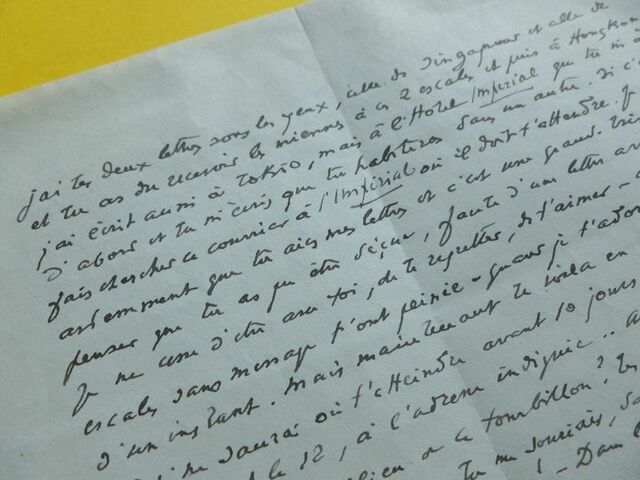 j'ai tes deux lettres sous les yeux, celle de Singapour et celle de
et tu as dû recevoir les miennes à ces 2 escales et puis à Hongkong
j'ai écrit aussi à Tokio, mais à l'Hôtel Impérial que tu m'
d'abord et tu m'écris que tu habiteras dans un autre. Si c'
fais chercher ce courrier à l'Impérial où il doit t'attendre. J
ardemment que tu aies mes lettres et c'est une grand
penser que tu as pu être déçue, faute d'une lettre
Je ne cesse d'être avec toi, de te regretter, de t'aimer -
escales sans message t'ont peinée - quand je t'
d'un instant. Mais maintenant te voilà en
ne saurai où t'atteindre avant 10 jours
le 12, à l'adresse indiquée ..
ce tourbillon?
tu me souriais,
! - Dans